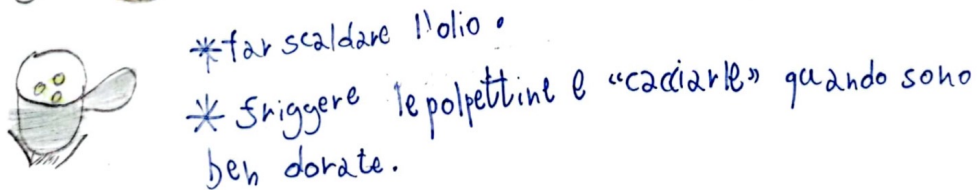 *far scaldare l'olio.
* friggere le polpettine e "cacciarle" quando sono
ben dorate.